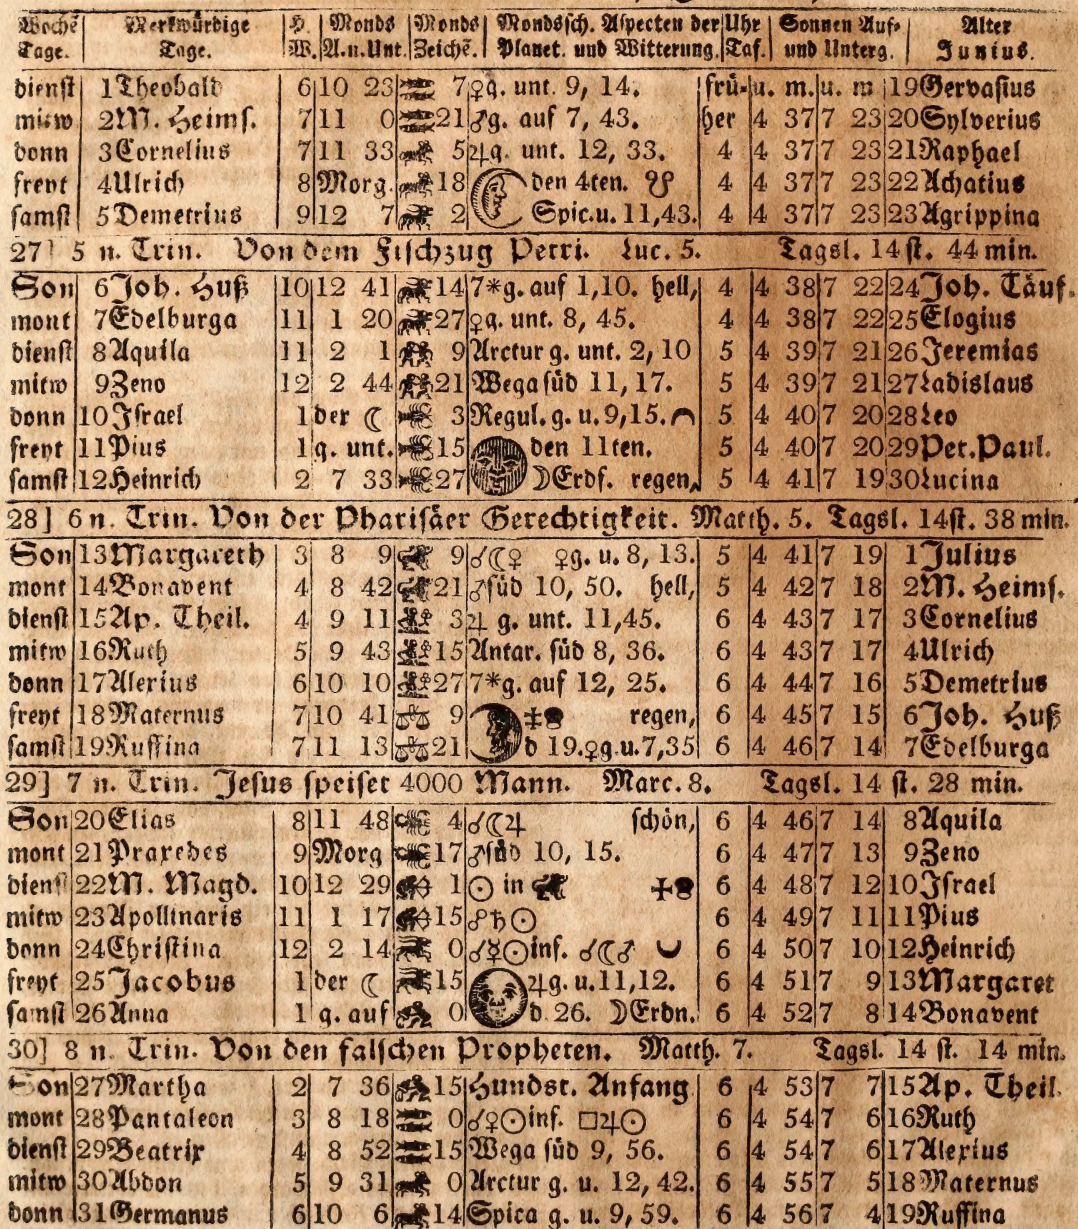 Woche Merkwürdige H. Monds Monds Mondssch. Aspecten der Uhr Sonnen Auf- Alter
Tage. Tage. W. A.u.Unt. Zeichē. Planet. und Witterung. Taf. und Unterg. Junius.
dienst 1 Theobald 6 10 23 7 ♀g. unt. 9, 14. frü- u. m. u. m 19 Gervasius
mitw 2 M. Heims. 7 11 0 21 ♂g. auf 7, 43. her 4 37 7 23 20 Sylverius
donn 3 Cornelius 7 11 33 5 ♃g. unt. 12, 33. 4 4 37 7 23 21 Raphael
freyt 4 Ulrich 8 Morg. 18 den 4ten. ☋ 4 4 37 7 23 22 Achatius
samst 5 Demetrius 9 12 7 2 Spic.u. 11,43. 4 4 37 7 23 23 Agrippina
27] 5 n. Trin. Von dem Fischzug Petri. Luc. 5. Tagsl. 14 st. 44 min.
Son 6 Joh. Huß 10 12 41 14 7*g. auf 1,10. hell, 4 4 38 7 22 24 Joh. Täuf.
mont 7 Edelburga 11 1 20 27 ♀g. unt. 8, 45. 4 4 38 7 22 25 Elogius
dienst 8 Aquila 11 2 1 9 Arctur g. unt. 2, 10 5 4 39 7 21 26 Jeremias
mitw 9 Zeno 12 2 44 21 Wega süd 11, 17. 5 4 39 7 21 27 Ladislaus
donn 10 Israel 1 der ☾ 3 Regul. g. u. 9,15. 5 4 40 7 20 28 Leo
freyt 11 Pius 1 g. unt. 15 den 11ten. 5 4 40 7 20 29 Pet. Paul.
samst 12 Heinrich 2 7 33 27 ☽Erdf. regen, 5 4 41 7 19 30 Lucina
28] 6 n. Trin. Von der Pharisäer Gerechtigkeit. Matth. 5. Tagsl. 14st. 38 min.
Son 13 Margareth 3 8 9 9 ☌☾♀ ♀g. u. 8, 13. 5 4 41 7 19 1 Julius
mont 14 Bonavent 4 8 42 21 ♂süd 10, 50. hell, 5 4 42 7 18 2 M. Heims.
dienst 15 Ap. Theil. 4 9 11 3 ♃ g. unt. 11,45. 6 4 43 7 17 3 Cornelius
mitw 16 Ruth 5 9 43 15 Antar. süd 8, 36. 6 4 43 7 17 4 Ulrich
donn 17 Alexius 6 10 10 27 7*g. auf 12, 25. 6 4 44 7 16 5 Demetrius
freyt 18 Maternus 7 10 41 9 regen, 6 4 45 7 15 6 Joh. Huß
samst 19 Ruffina 7 11 13 21 d 19. ♀g.u.7,35 6 4 46 7 14 7 Edelburga
29] 7 n. Trin. Jesus speiset 4000 Mann. Marc. 8. Tagsl. 14 st. 28 min.
Son 20 Elias 8 11 48 4 ☌☾♃ schön, 6 4 46 7 14 8 Aquila
mont 21 Praxedes 9 Morg 17 ♂süd 10, 15. 6 4 47 7 13 9 Zeno
dienst 22 M. Magd. 10 12 29 1 ☉ in 6 4 48 7 12 10 Israel
mitw 23 Apollinaris 11 1 17 15 ☍♄☉ 6 4 49 7 11 11 Pius
donn 24 Christina 12 2 14 0 ☌☿☉inf. ☌☾♂ 6 4 50 7 10 12 Heinrich
freyt 25 Jacobus 1 der ☾ 15 ♃g. u.11,12. 6 4 51 7 9 13 Margaret
samst 26 Anna 1 g. auf 0 d. 26. ☽Erdn. 6 4 52 7 8 14 Bonavent
30] 8 n. Trin. Von den falschen Propheten. Matth. 7. Tagsl. 14 st. 14 min.
Son 27 Martha 2 7 36 15 Hundst. Anfang 6 4 53 7 7 15 Ap. Theil.
mont 28 Pantaleon 3 8 18 0 ☌♀☉inf. □♃☉ 6 4 54 7 6 16 Ruth
dienst 29 Beatrix 4 8 52 15 Wega süd 9, 56. 6 4 54 7 6 17 Alexius
mitw 30 Abdon 5 9 31 0 Arctur g. u. 12, 42. 6 4 55 7 5 18 Maternus
donn 31 Germanus 6 10 6 14 Spica g. u. 9, 59. 6 4 56 7 4 19 Ruffina